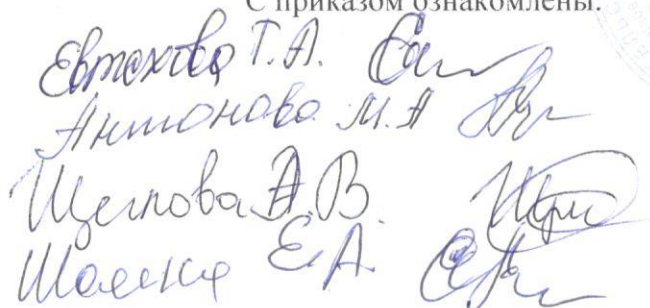 С приказом ознакомлены.
Евтехова Т.А.
Антонова М.А
Щеглова А.В.
Е.А.